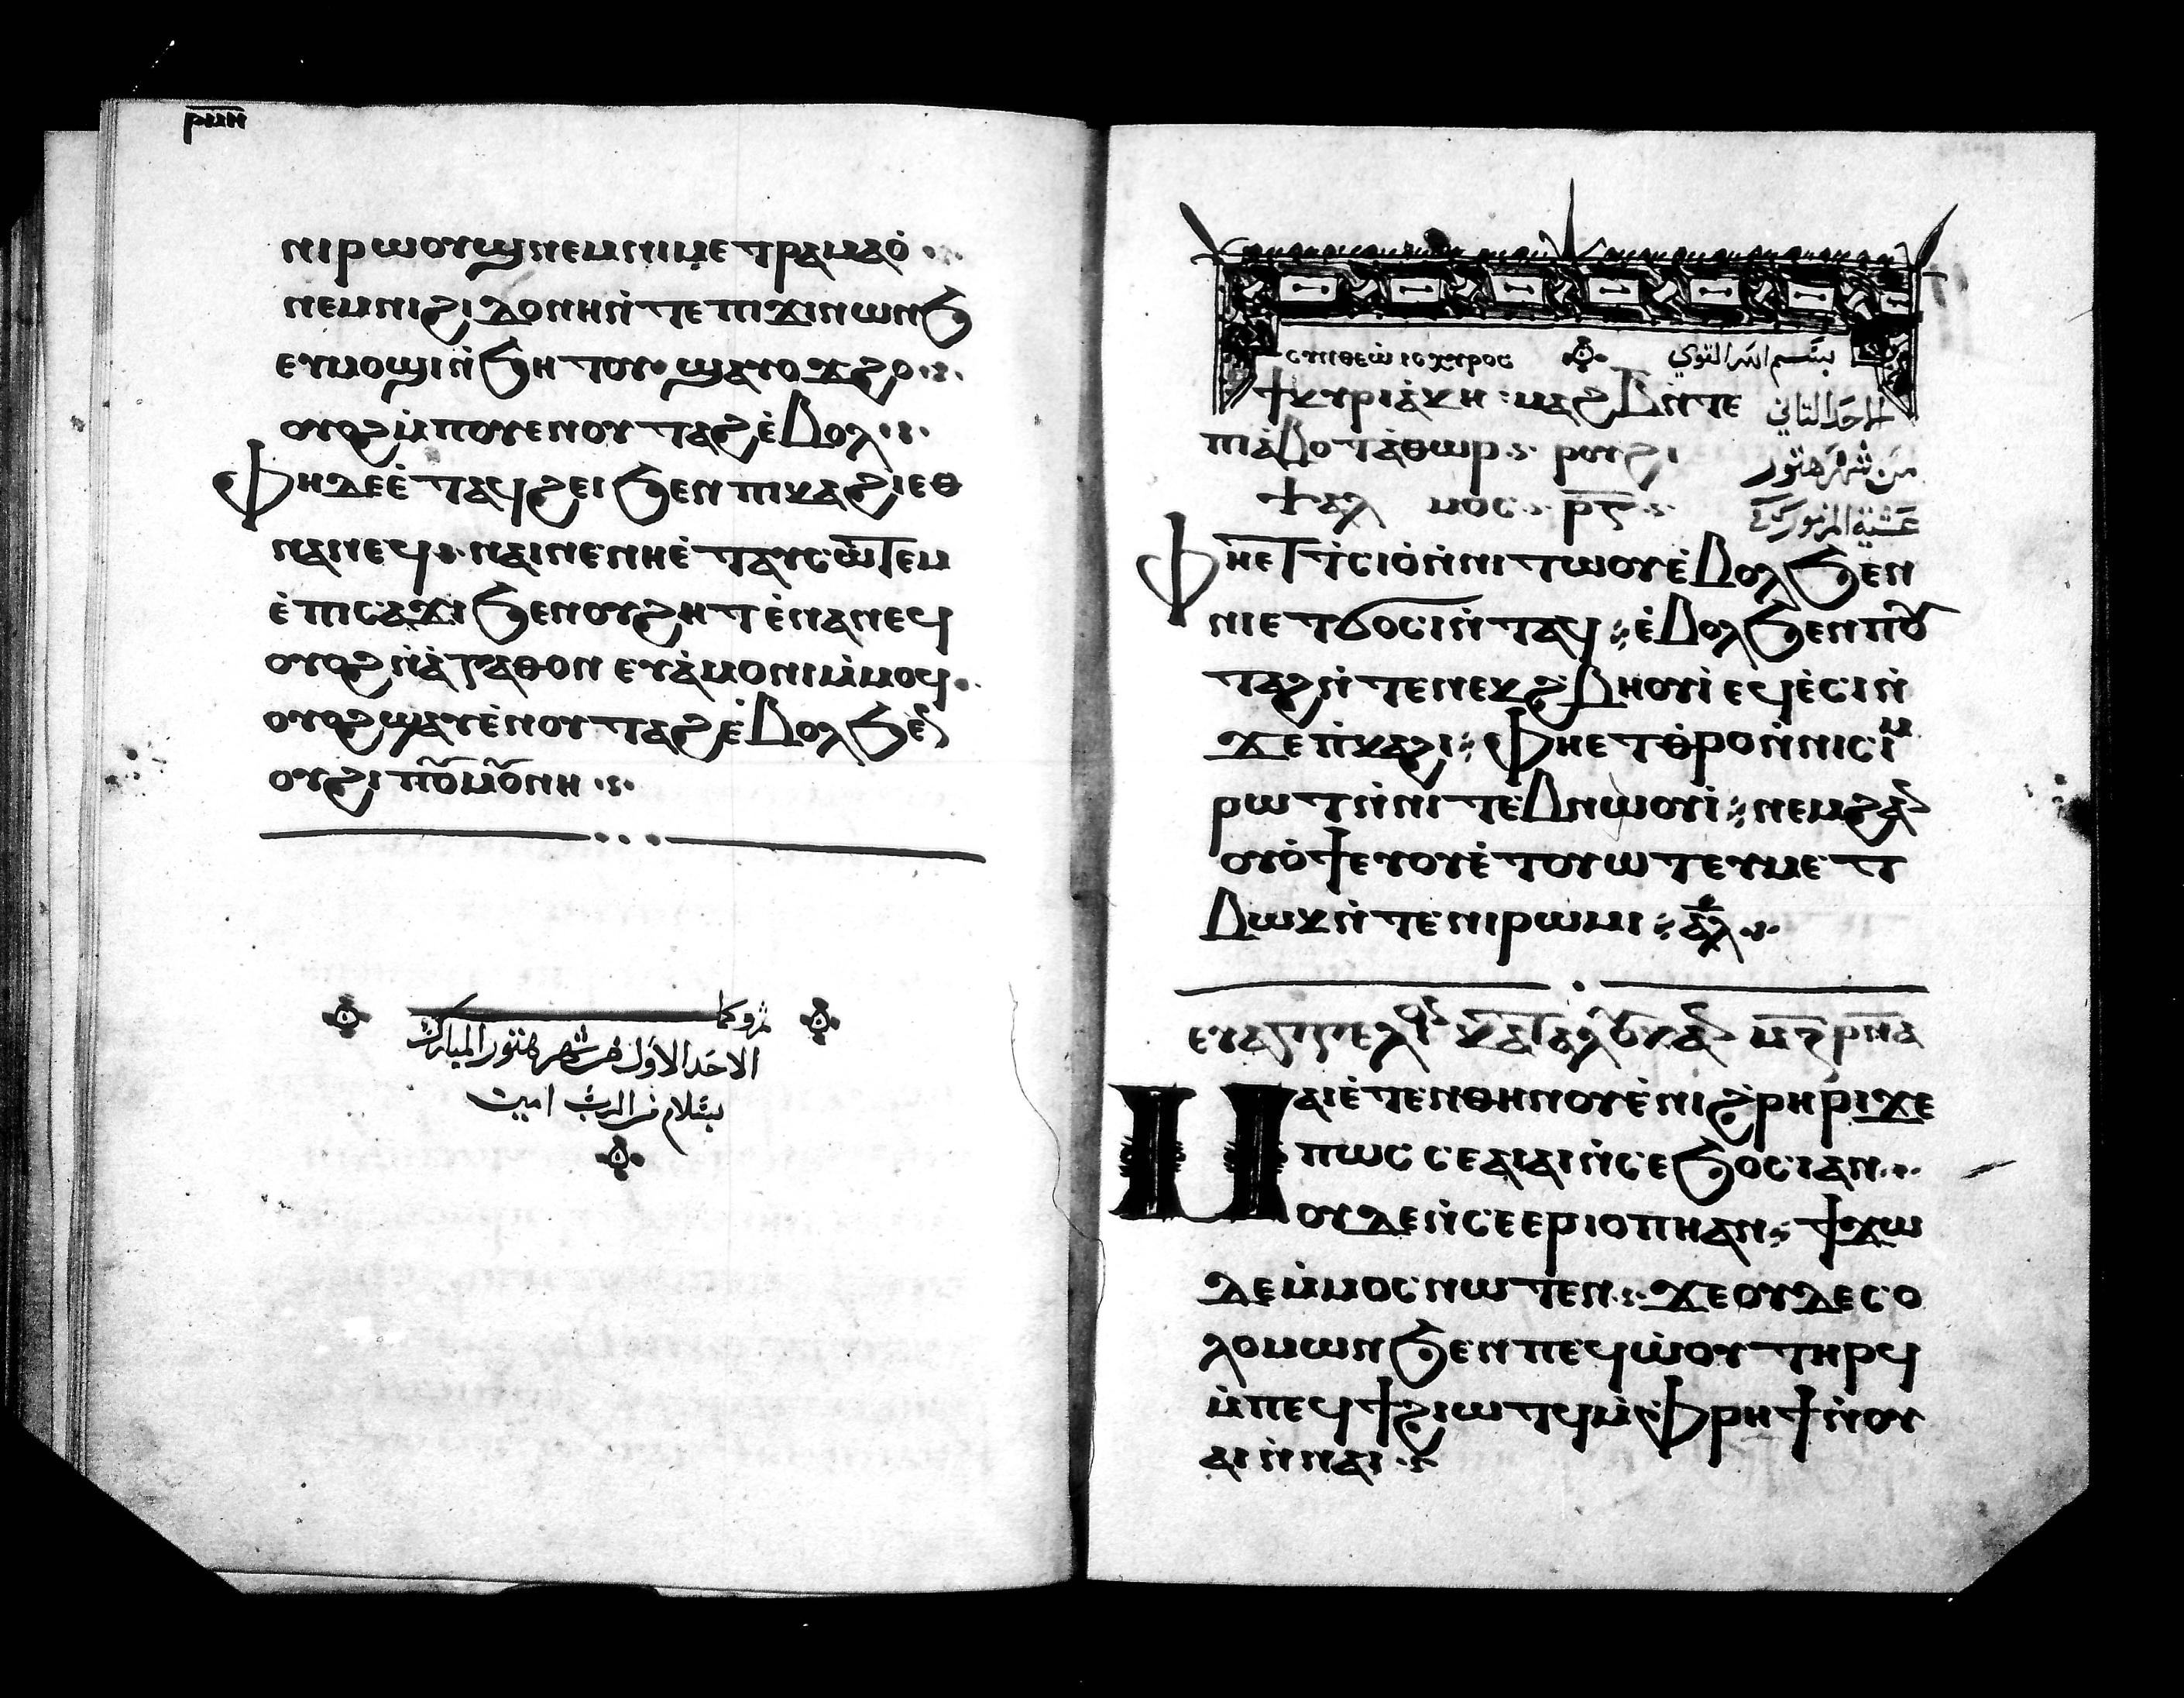 ⲣⲙⲏ
ⲛⲓⲣⲱⲟⲩϣ ⲛⲉⲙ ⲛⲓⲙⲉⲧⲣⲁⲙⲁⲟ̇
ⲛⲉⲙ ⲛⲓϩⲓⲇⲟⲛⲏ ⲛ̇ⲧⲉ ⲡⲓϫⲓⲛⲱⲛϧ
ⲉⲩⲙⲟϣⲓ ⲛ̇ϧⲏⲧⲟⲩ ϣⲁⲩⲟϫϩⲟ
ⲟⲩⲟϩ ⲙ̇ⲡⲟⲩⲉⲛⲟⲩⲧⲁϩ ⲉ̇ⲃⲟⲗ
ⲫⲏ ⲇⲉ ⲉ̇ⲧⲁϥϩⲉⲓ ϧⲉⲛ ⲡⲓⲕⲁϩⲓ ⲉⲑ
ⲛⲁⲛⲉϥ ⲛⲁⲓ ⲛⲉ ⲛⲏ ⲉ̇ⲧⲁⲩⲥⲱⲧⲉⲙ
ⲉ̇ⲡⲓⲥⲁϫⲓ ϧⲉⲛ ⲟⲩϩⲏⲧ ⲉ̇ⲛⲁⲛⲉϥ
ⲟⲩⲟϩ ⲛ̇ⲁ̇ⲅⲁⲑⲟⲛ ⲉⲩⲁ̇ⲙⲟⲛⲓ ⲙ̇ⲙⲟϥ
ⲟⲩⲟϩ ϣⲁⲩⲉ̇ⲛⲟⲩⲧⲁϩ ⲉ̇ⲃⲟⲗ ϧⲉⲛ
ⲟⲩϩⲓⲡⲟⲙⲟⲛⲏ
الاحد الاول من شهر هتور المبارك
بسلام من الرب امين
ⲥⲩⲛ ⲑⲉⲱ̇ ⲓⲥⲭⲩⲣⲟⲥ بسم الله القوي
ϯⲕⲩⲣⲓⲁ̇ⲕⲏ ⲙⲁϩ ⲃ̅ ⲛ̇ⲧⲉ الاحد الثاني
ⲡⲓⲁ̇ⲃⲟⲧ ⲁ̇ⲑⲱⲣ ⲣⲟⲩϩⲓ من شهر هتور
ⲯⲁⲗⲙⲟⲥ ⲣ̅ⲅ̅ عشية المزمور
ⲫⲏⲉⲧⲧ̇ⲥⲓⲟ̇ ⲛ̇ⲛⲓⲧⲱⲟⲩ ⲉ̇ⲃⲟⲗ ϧⲉⲛ
ⲛⲓⲉⲧϭⲟⲥⲓ ⲛ̇ⲧⲁϥ ⲉ̇ⲃⲟⲗ ϧⲉⲛ ⲡⲟⲩ
ⲧⲁϩ ⲛ̇ⲧⲉ ⲛⲉⲕϩⲃⲏⲟⲩⲓ̇ ⲉϥⲉ̇ⲥⲓ ⲛ̇
ϫⲉ ⲡ̇ⲕⲁϩⲓ ⲫⲏⲉⲧⲑ̇ⲣⲟ ⲛ̇ⲛⲓⲥⲓⲙ
ⲣⲱⲧ ⲛ̇ⲛⲓⲧⲉⲃⲛⲱⲟⲩⲓ̇ ⲛⲉⲙ ϩⲁⲛ
ⲟⲩⲟ̇ϯ ⲉⲩⲟⲩⲉ̇ⲧⲟⲩⲱⲧ ⲉⲩⲙⲉⲧ
ⲃⲱⲕ ⲛ̇ⲧⲉ ⲛⲓⲣⲱⲙⲓ ⲁⲗ
ⲉⲩⲁⲅⲅⲉⲗⲓⲟⲛ ⲕⲁⲧⲁ ⲗⲟⲩⲕⲁⲛ
ⲙⲁⲓⲉ̇ⲧⲉⲛⲑⲏⲛⲟⲩ ⲉ̇ⲛⲓϩ̇ⲣⲏⲣⲓ ϫⲉ
ⲡⲱⲥ ⲥⲉⲁⲓⲁⲓ ⲛ̇ⲥⲉϧⲟⲥⲓ ⲁⲛ
ⲟⲩⲇⲉ ⲛ̇ⲥⲉⲉⲣⲓⲟⲡⲏ ⲁⲛ ϯϫⲱ
ⲇⲉ ⲙ̇ⲙⲟⲥ ⲛⲱⲧⲉⲛ ϫⲉ ⲟⲩⲇⲉ ⲥⲟ
ⲗⲟⲙⲱⲛ ϧⲉⲛ ⲡⲉϥⲱ̇ⲟⲩ ⲧⲏⲣϥ
ⲙ̇ⲡⲉϥϯϩⲓⲱⲧϥ ⲙ̇ⲫ̇ⲣⲏϯ ⲛ̇ⲟⲩ
ⲁⲓ ⲛ̇ⲛⲁⲓ